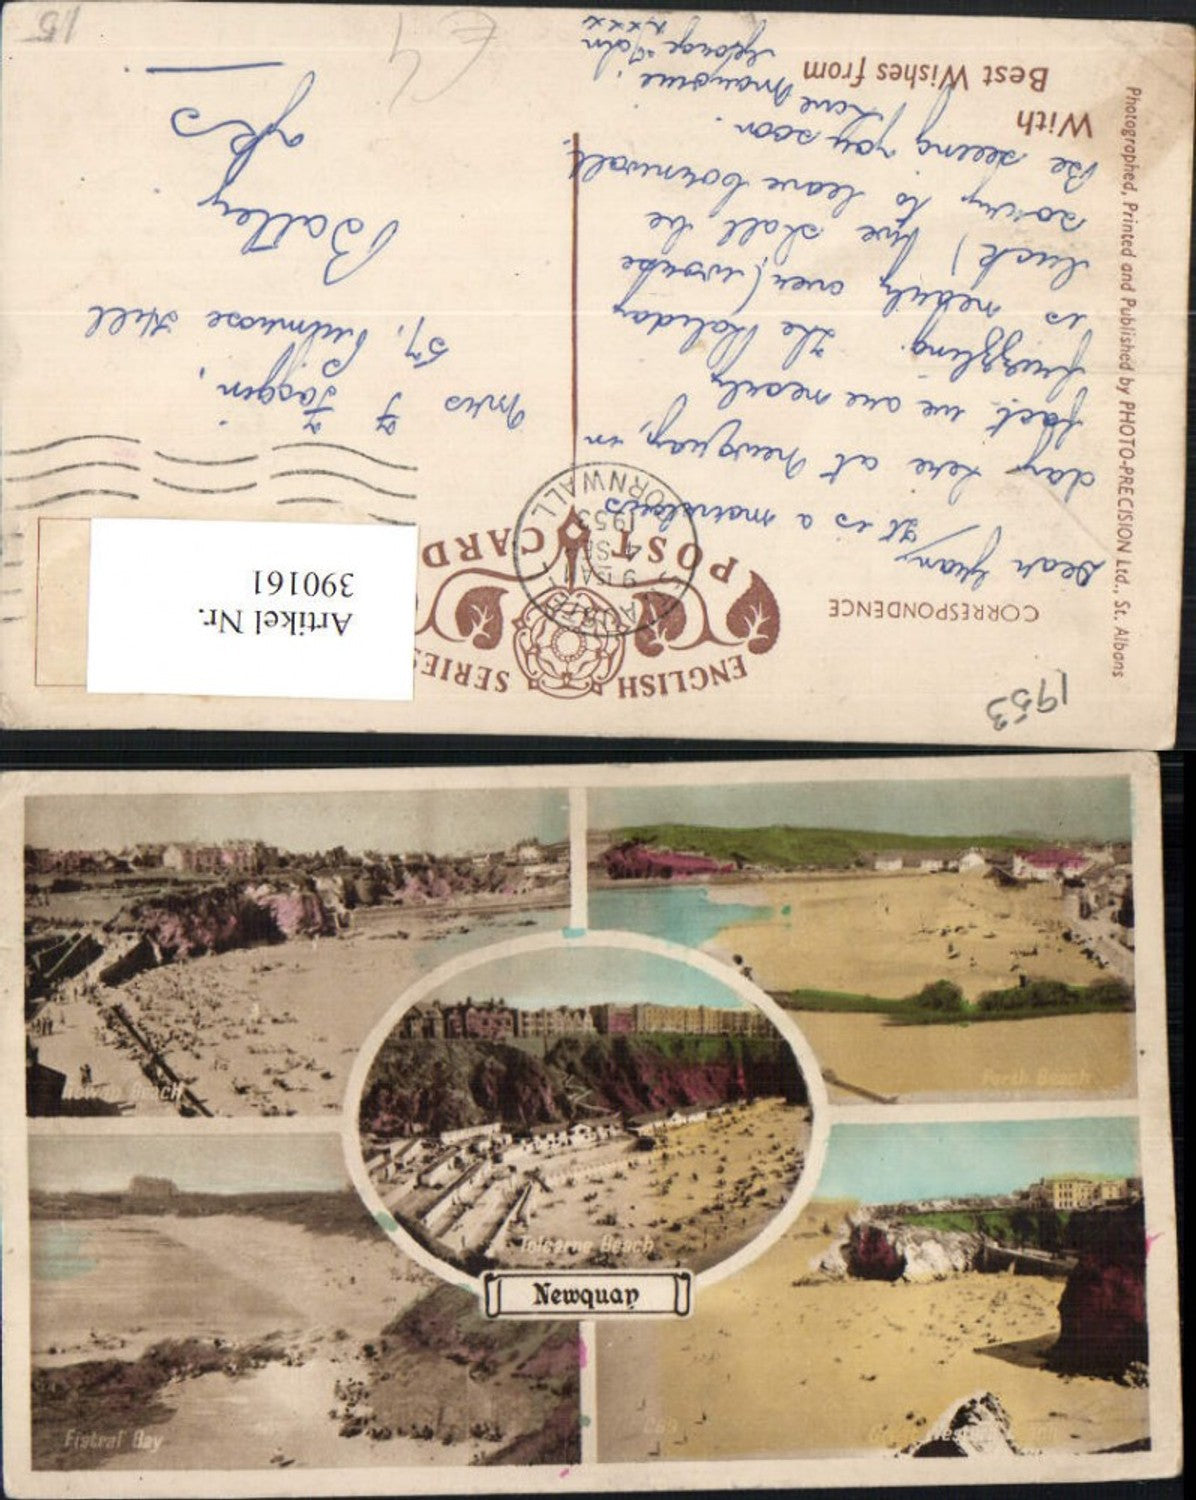 1953
ENGLISH SERIES
POST CARD
CORRESPONDENCE
ST AUSTELL
9 15 AM
4 SEP
1953
CORNWALL
Artikel Nr.
390161
Dear Gran,
It is a marvelous
day here at Newquay, in
fact we are nearly
frizzling. The Holiday
is nearly over (worse
luck) We shall be
sorry to leave Cornwall.
Be seeing you soon.
Love
George John
xxxx
With
Best Wishes from
Mrs F Jaggin,
57, Primrose Hill
Batley
Yks
£4
15
Photographed, Printed and Published by PHOTO-PRECISION Ltd., St. Albans
Beach
Porth Beach
Tolcarne Beach
Newquay
Fistral Bay